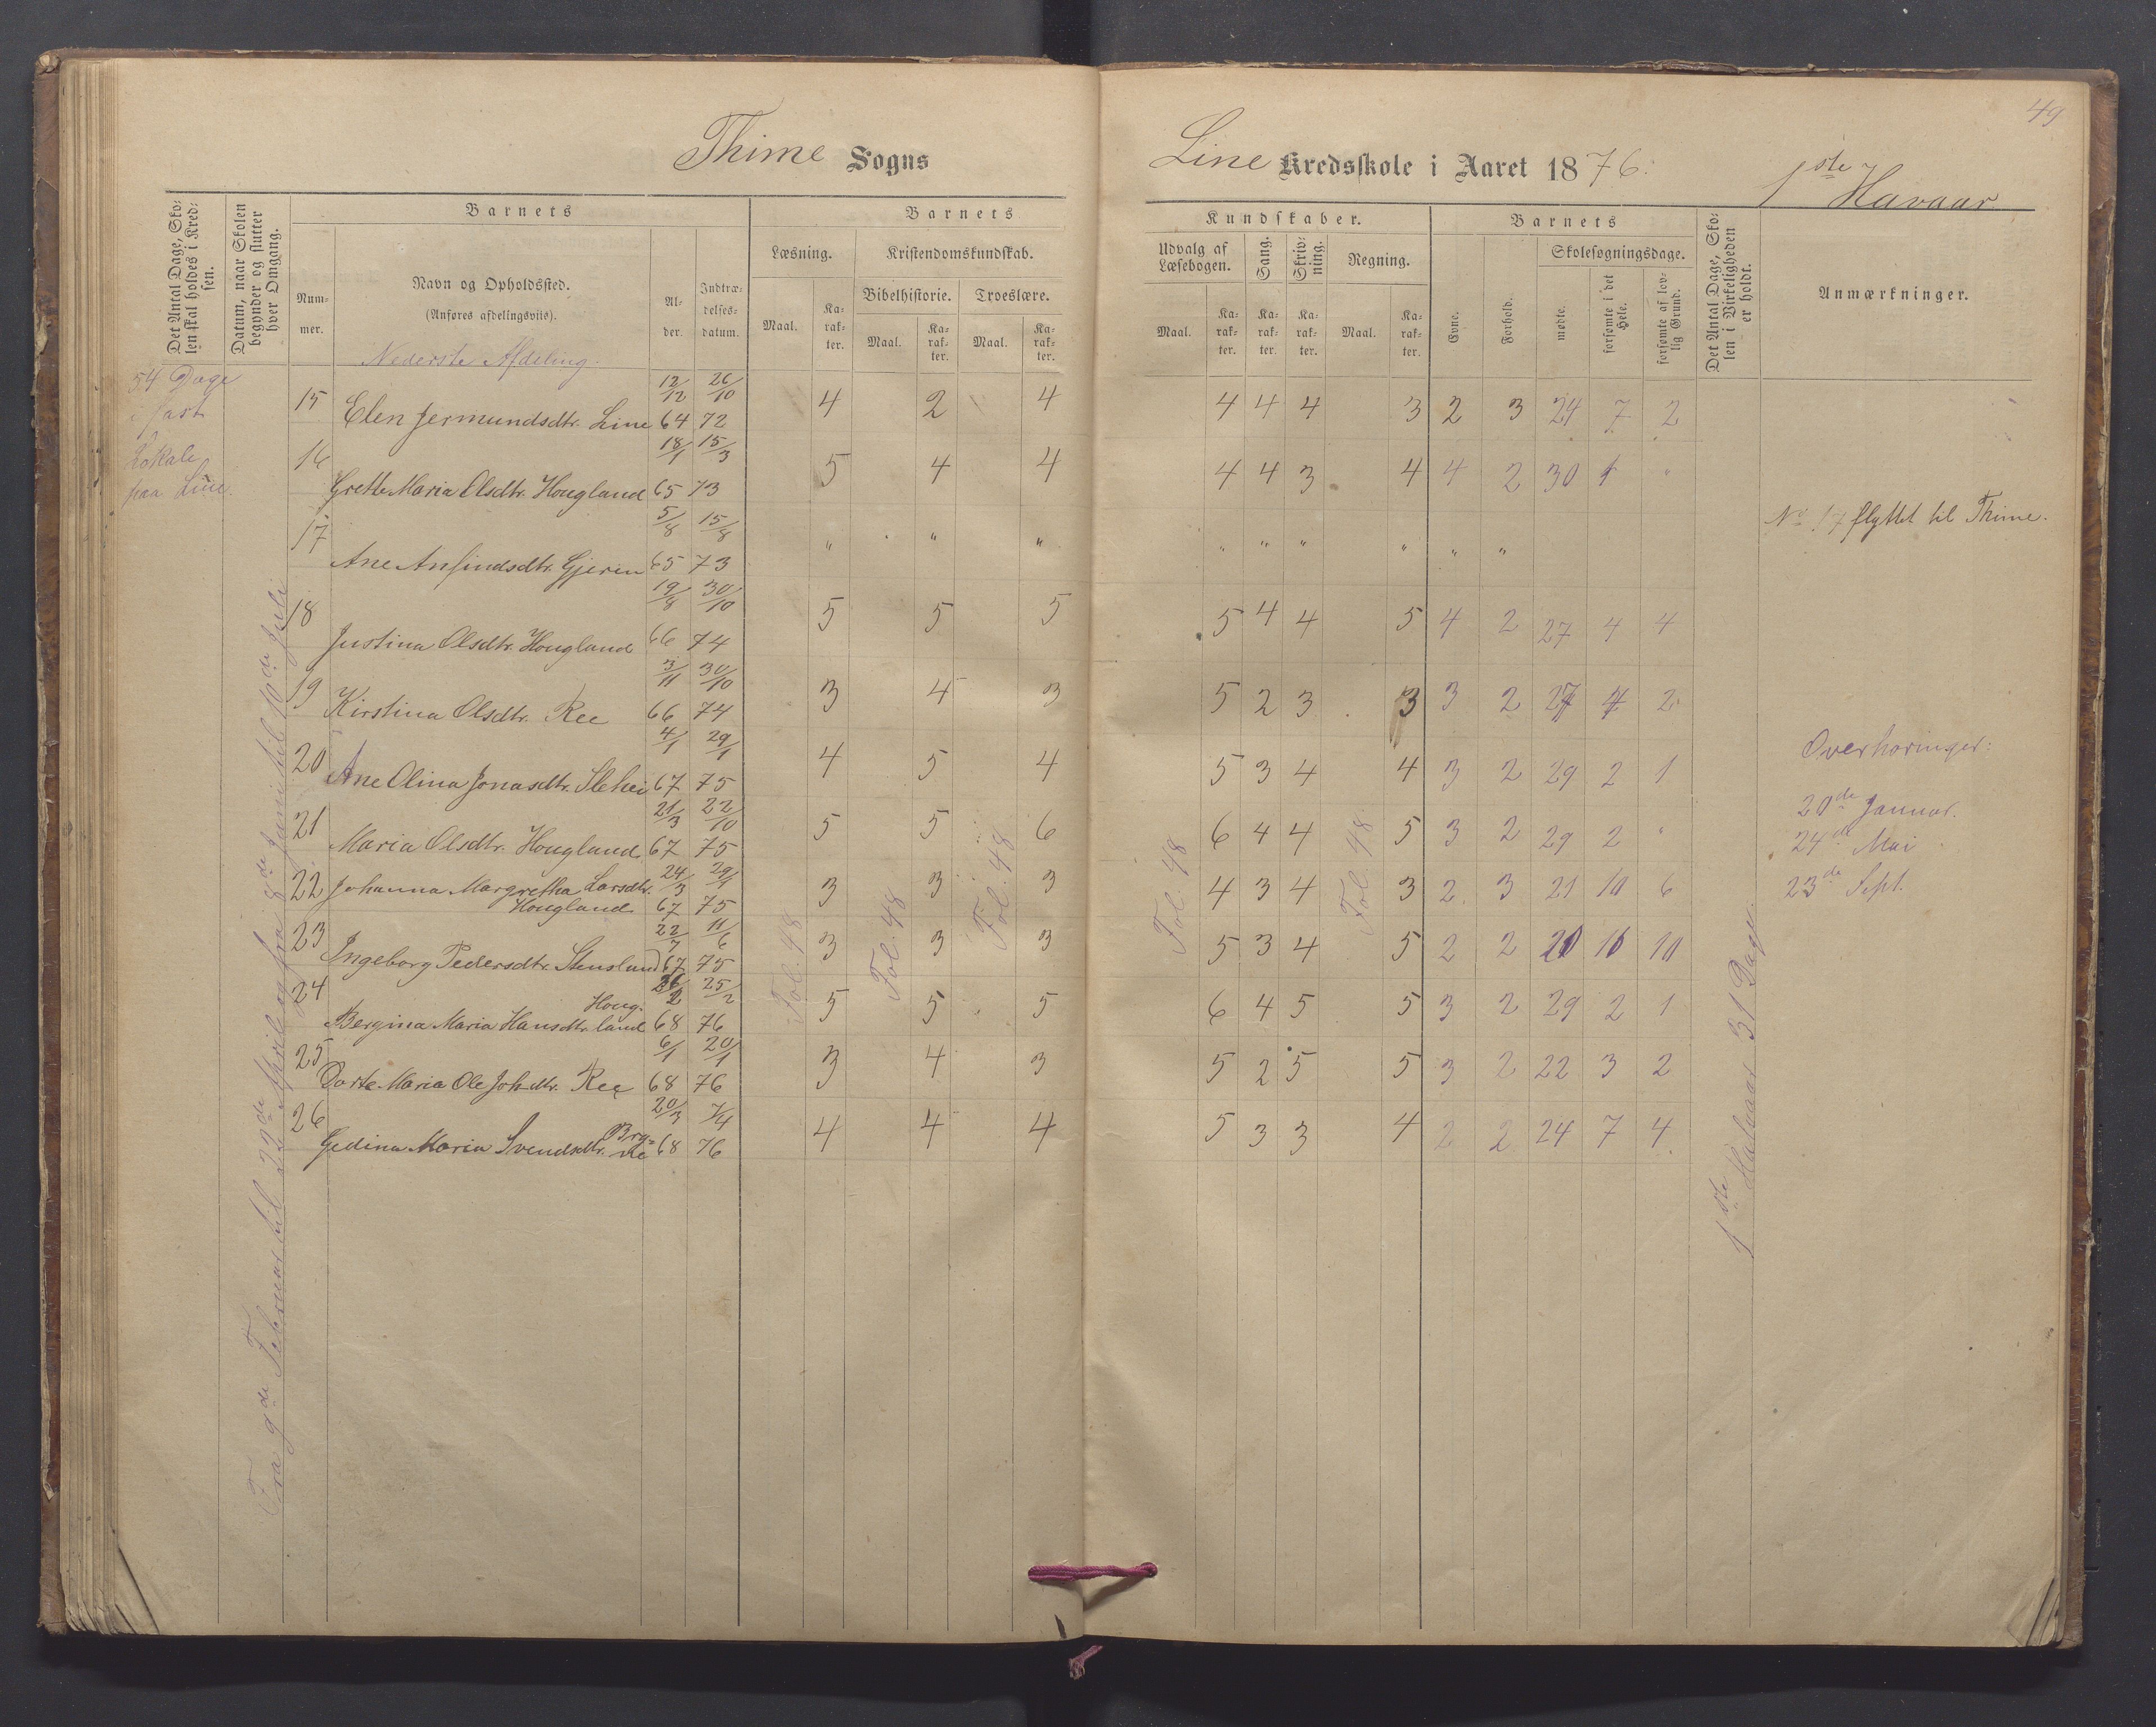 49
Thime Sogns
Line Kredsskole i Aaret 1876.
1ste Havaar
Det Antal Dage, Skolen skal holdes i Kredsen.
Datum, naar Skolen begynder og slutter hver Omgang.
Barnets
Nummer.
Navn og Opholdssted.
(Anføres afdelingsviis).
Nederste Afdeling.
Alder.
Indtrædelsesdatum.
Barnets
Læsning.
Maal.
Karakter.
Kristendomskundskab.
Bibelhistorie.
Maal.
Karakter.
Troeslære.
Maal.
Karakter.
Kundskaber.
Udvalg af Læsebogen.
Maal.
Karakter.
Sang.
Karakter.
Skrivning.
Karakter.
Regning.
Maal.
Karakter.
Barnets
Evne.
Forhold.
Skolesøgningsdage.
mødte.
forsømte i det Hele.
forsømte af lovlig Grund.
Det Antal Dage, Skolen i Virkeligheden er holdt.
Anmærkninger.
54 Dage
i fast
Lokale
paa Line.
Fra 9de Februar til 22de April og fra 8de Juni til 10de Juli
15 Elen Jermundsdtr. Line 12/12 64 26/10 72 4 2 4 4 4 4 3 2 3 24 7 2
16 Grethe Maria Olsdtr. Hougland 18/1 65 15/3 73 5 4 4 4 4 3 4 4 2 30 1 "
17 Ane Anfindsdtr. Gjeren 5/8 65 15/8 73 " " " " " " " " "
No 17 flyttet til Thime.
18 Justina Olsdtr. Hougland 19/8 66 30/10 74 5 5 5 5 4 4 5 4 2 27 4 4
19 Kirstina Olsdtr. Ree 3/11 66 30/10 74 3 4 3 5 2 3 3 3 2 27 4 2
20 Ane Olina Jonasdtr. Slehei 4/1 67 29/1 75 4 5 4 5 3 4 4 3 2 29 2 1
21 Maria Olsdtr. Hougland 21/3 67 22/10 75 5 5 6 6 4 4 5 3 2 29 2 "
22 Johanna Margretha Larsdtr. Hougland 24/3 67 29/1 75 3 3 3 4 3 4 3 2 3 21 10 6
23 Ingeborg Pedersdtr. Stensland 22/7 67 11/6 75 3 3 3 5 3 4 5 2 2 10
24 Bergina Maria Hansdtr. Hougland 2 68 25/2 76 5 5 5 6 4 5 5 3 2 29 2 1
25 Dorte Maria Ole Joh-dtr. Ree 6/1 68 20/1 76 3 4 3 5 2 5 5 3 2 22 3 2
26 Gedina Maria Svendsdtr. Bryne 20/3 68 7/4 76 4 4 4 5 3 3 4 2 2 24 7 4
Fol. 48
Fol. 48
Fol. 48
Fol. 48
Fol. 48
1ste Halvaar 31 Dage.
Overhøringer:
20de Januar.
24de Mai
23de Sept.